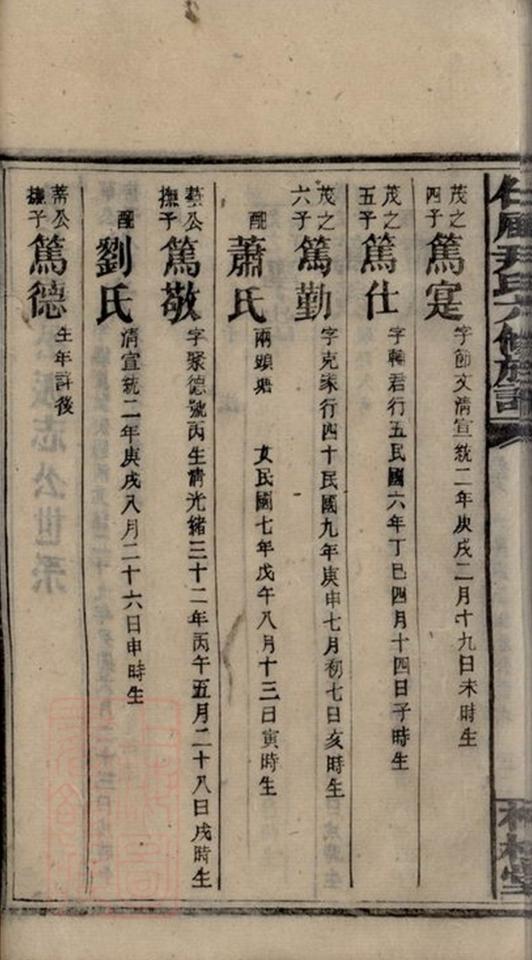 尹氏六修族譜
茂之四子 篤寔 字節文清宣統二年庚戌二月十九日未時生
茂之五子 篤仕 字翰君行五民國六年丁巳四月十四日子時生
茂之六子 篤勤 字克家行四十民國九年庚申七月初七日亥時生
配 蕭氏 兩頭塘 女民國七年戊午八月十三日寅時生
公撫子 篤敬 字聚德號丙生清光緒三十二年丙午五月二十八日戌時生
配 劉氏 清宣統二年庚戌八月二十六日申時生
公撫子 篤德 生年詳後